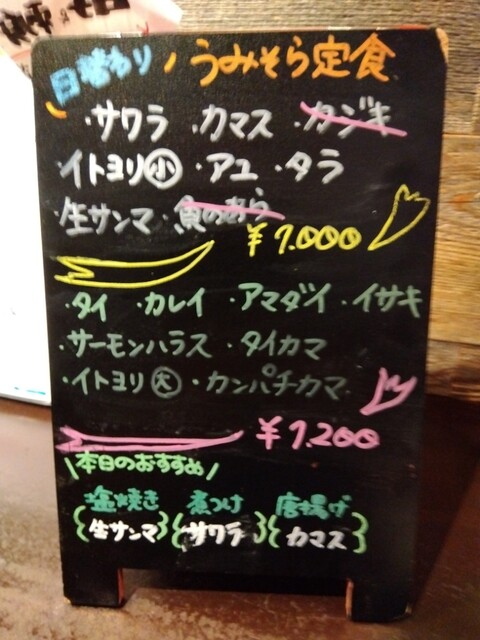 日替わり うみそら定食
・サワラ ・カマス ・カジキ
・イトヨリ小 ・アユ ・タラ
・生サンマ ・魚のあら
¥1.000
・タイ ・カレイ ・アマダイ ・イサキ
・サーモンハラス ・タイカマ
・イトヨリ大 ・カンパチカマ
¥1.200
\本日のおすすめ/
塩焼き 煮つけ 唐揚げ
{生サンマ} {サワラ} {カマス}